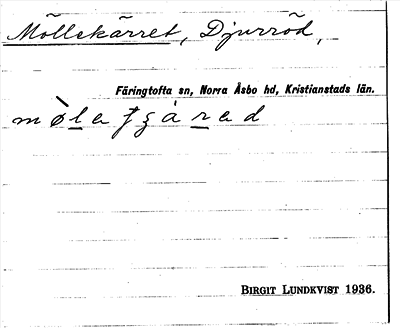 Möllekärret, Djurröd,
Färingtofta sn, Norra Åsbo hd, Kristianstads län.
BIRGIT LUNDKVIST 1936.